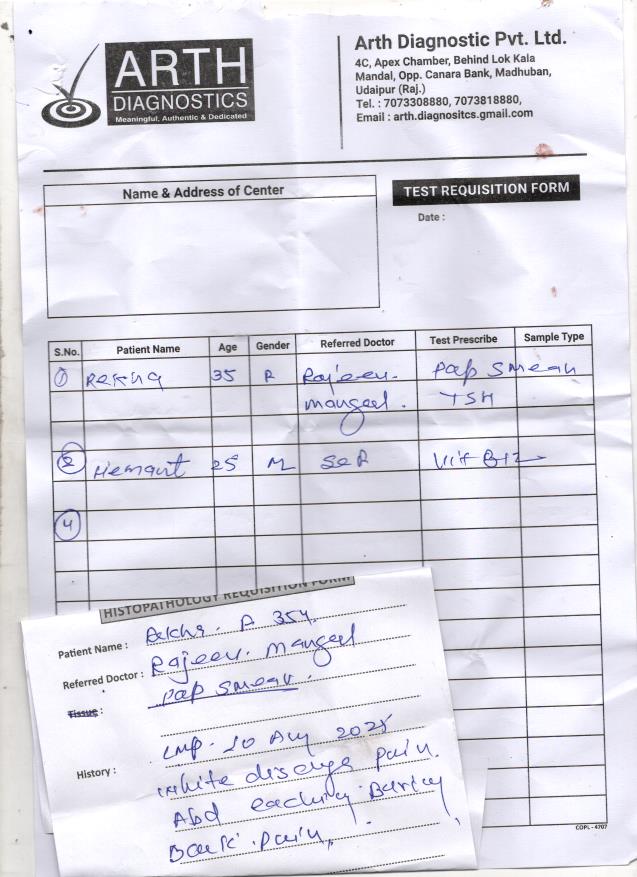 ARTH
DIAGNOSTICS
Meaningful, Authentic & Dedicated
Arth Diagnostic Pvt. Ltd.
4C, Apex Chamber, Behind Lok Kala
Mandal, Opp. Canara Bank, Madhuban,
Udaipur (Raj.)
Tel. : 7073308880, 7073818880,
Email : arth.diagnositcs.gmail.com
Name & Address of Center
TEST REQUISITION FORM
Date :
S.No. Patient Name Age Gender Referred Doctor Test Prescribe Sample Type
1 Rekha 35 Rajeev. Pap Smear
TSH
2 Hemant 25 M Self Vit B12
4
HISTOPATHOLOGY REQUISITION FORM
Patient Name : Rekha. 35y.
Referred Doctor : Rajeev.
Tissue : Pap Smear.
LMP. 20 Aug 2025
History : white discharge pain.
Abd
Back pain,
COPL - 4707